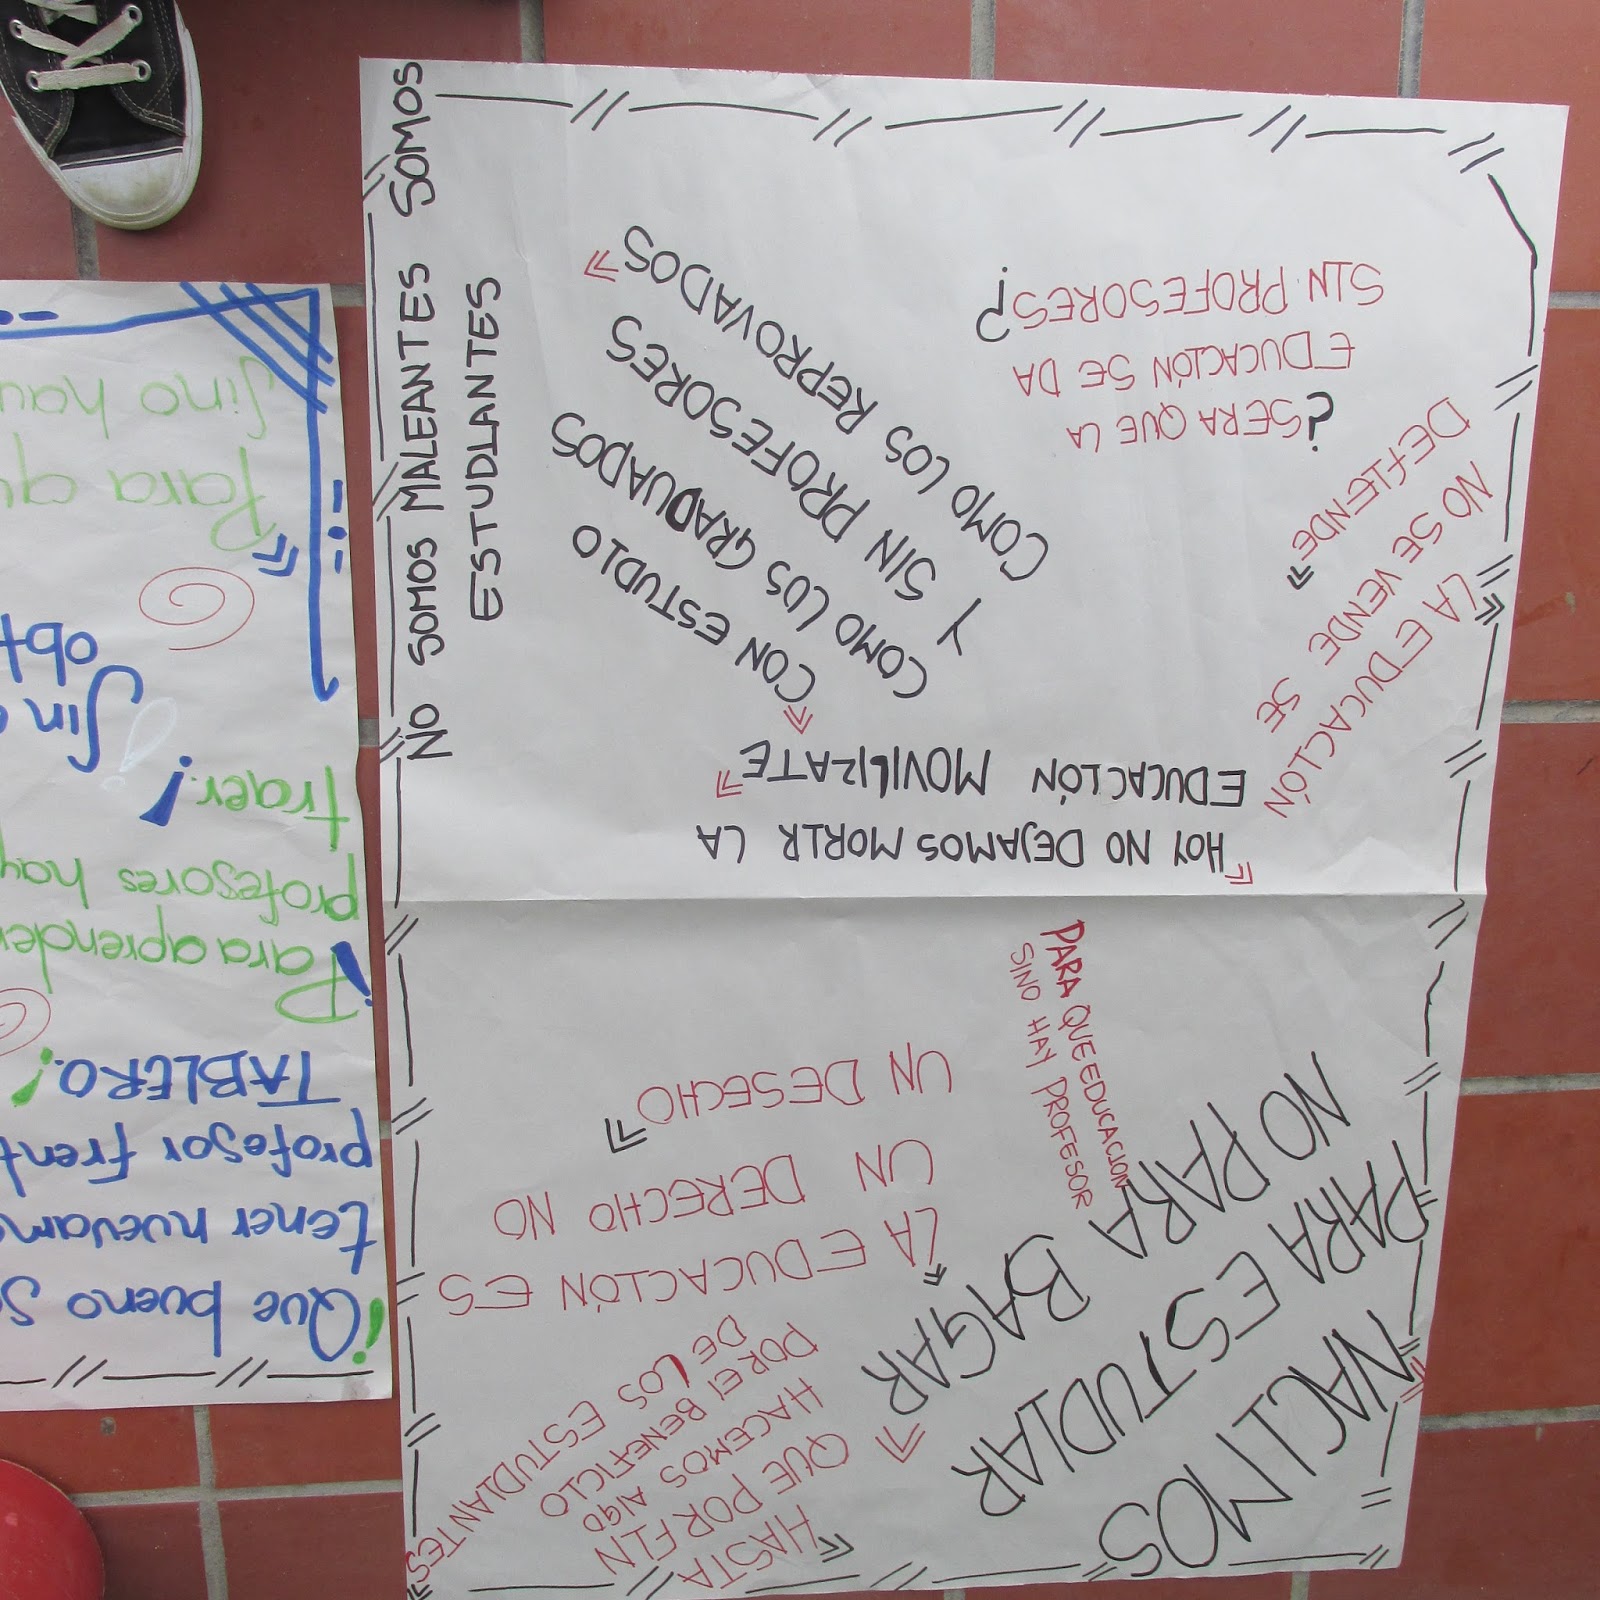 NACIMOS
PARA ESTUDIAR
NO PARA BAGAR
HASTA
QUE POR FIN
HACEMOS AlgO
POR El BENEFICIO
DE LOS ESTUDIANTES
LA EDUCACIÓN ES
UN DERECHO NO
UN DESECHO
PARA QUE EDUCACION
SINO HAY PROFESOR
HOY NO DEJAMOS MORIR LA
EDUCACIÓN MOVILIZATE
LA EDUCACIÓN
NO SE VENDE SE
DEFIENDE
CON ESTUDIO
COMO LOS GRADUADOS
Y SIN PROFESORES
COMO LOS REPROVADOS
¿SERA QUE LA
EDUCACIÓN SE DA
SIN PROFESORES?
NO SOMOS MALEANTES SOMOS
ESTUDIANTES
¡Que bueno s
tener nuevam
profesor frent
TABLERO!
¡Para aprender
profesores hay
traer!
Sin
obt
Para qu
Sino hay